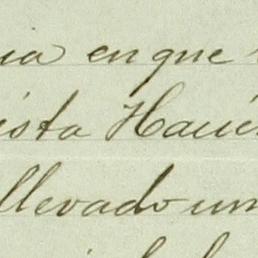 ua en que
ista Hacien
llevado un